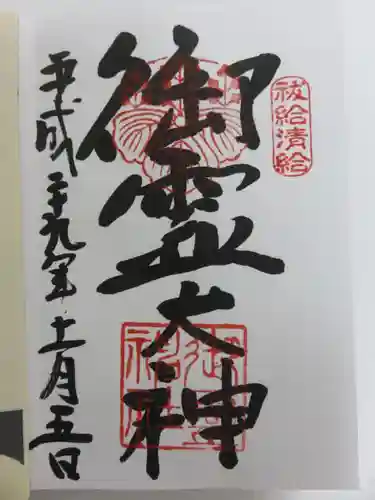 祓給清給
御霊大神
平成二十九年十一月五日